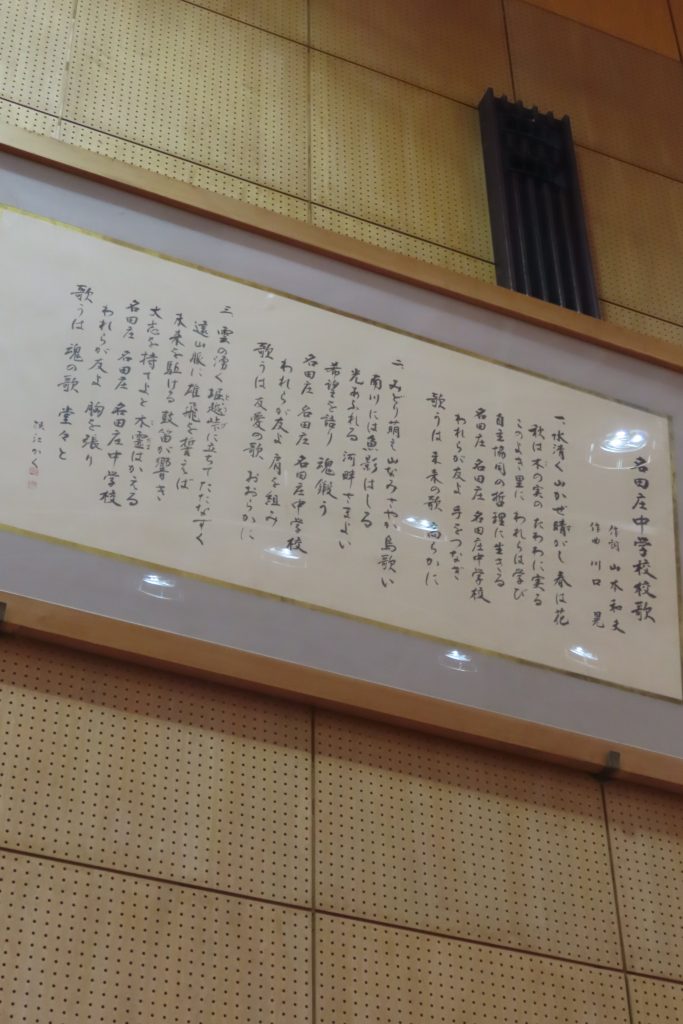 名田庄中学校校歌
作詞 山本和夫
作曲 川口 晃
一、水清く 山かぜ晴がし 春は花
秋は木の実の たわわに実る
このよき里に われらは学び
自主協同の哲理に生きる
名田庄 名田庄 名田庄中学校
われらが友よ 手をつなぎ
歌うは 未来の歌 高らかに
二、みどり萌ゆ 山なみさやか 鳥歌い
南川には魚影はしる
光あふれる 河畔さまよい
希望を語り 魂鍛う
名田庄 名田庄 名田庄中学校
われらが友よ 肩を組み
歌うは 友愛の歌 おおらかに
三、雲の湧く 堀越峠に立ちて たたなずく
遠山脈に 雄飛を誓えば
未来を駆ける 鼓笛が響き
大志を持てよと 木霊はかえる
名田庄 名田庄 名田庄中学校
われらが友よ 胸を張り
歌うは 魂の歌 堂々と